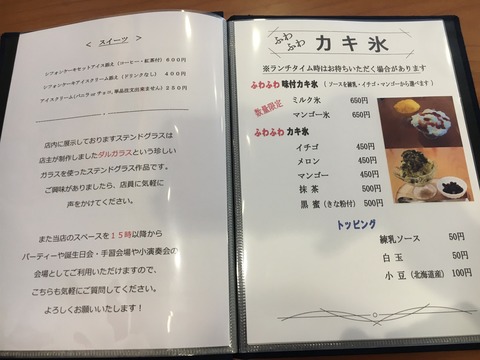 ＜ スイーツ ＞
シフォンケーキセットアイス添え（コーヒー・紅茶付）６００円
シフォンケーキアイスクリーム添え（ドリンクなし）４００円
アイスクリーム(バニラ or チョコ、単品注文出来ません) ２５０円
店内に展示しておりますステンドグラスは
店主が制作しましたダルガラスという珍しい
ガラスを使ったステンドグラス作品です。
ご興味がありましたら、店員に気軽に
声をかけてください。
また当店のスペースを１５時以降から
パーティーや誕生日会・手習会場や小演奏会の
会場としてご利用いただけますので、
こちらも気軽にご質問してください。
よろしくお願いいたします！
ふわふわ カキ氷
※ランチタイム時はお待ちいただく場合があります
ふわふわ 味付カキ氷 （ソースを練乳・イチゴ・マンゴーから選べます）
数量限定
ミルク氷 650円
マンゴー氷 650円
ふわふわ カキ氷
イチゴ 450円
メロン 450円
マンゴー 450円
抹茶 500円
黒蜜（きな粉付）500円
トッピング
練乳ソース 50円
白玉 50円
小豆（北海道産）100円